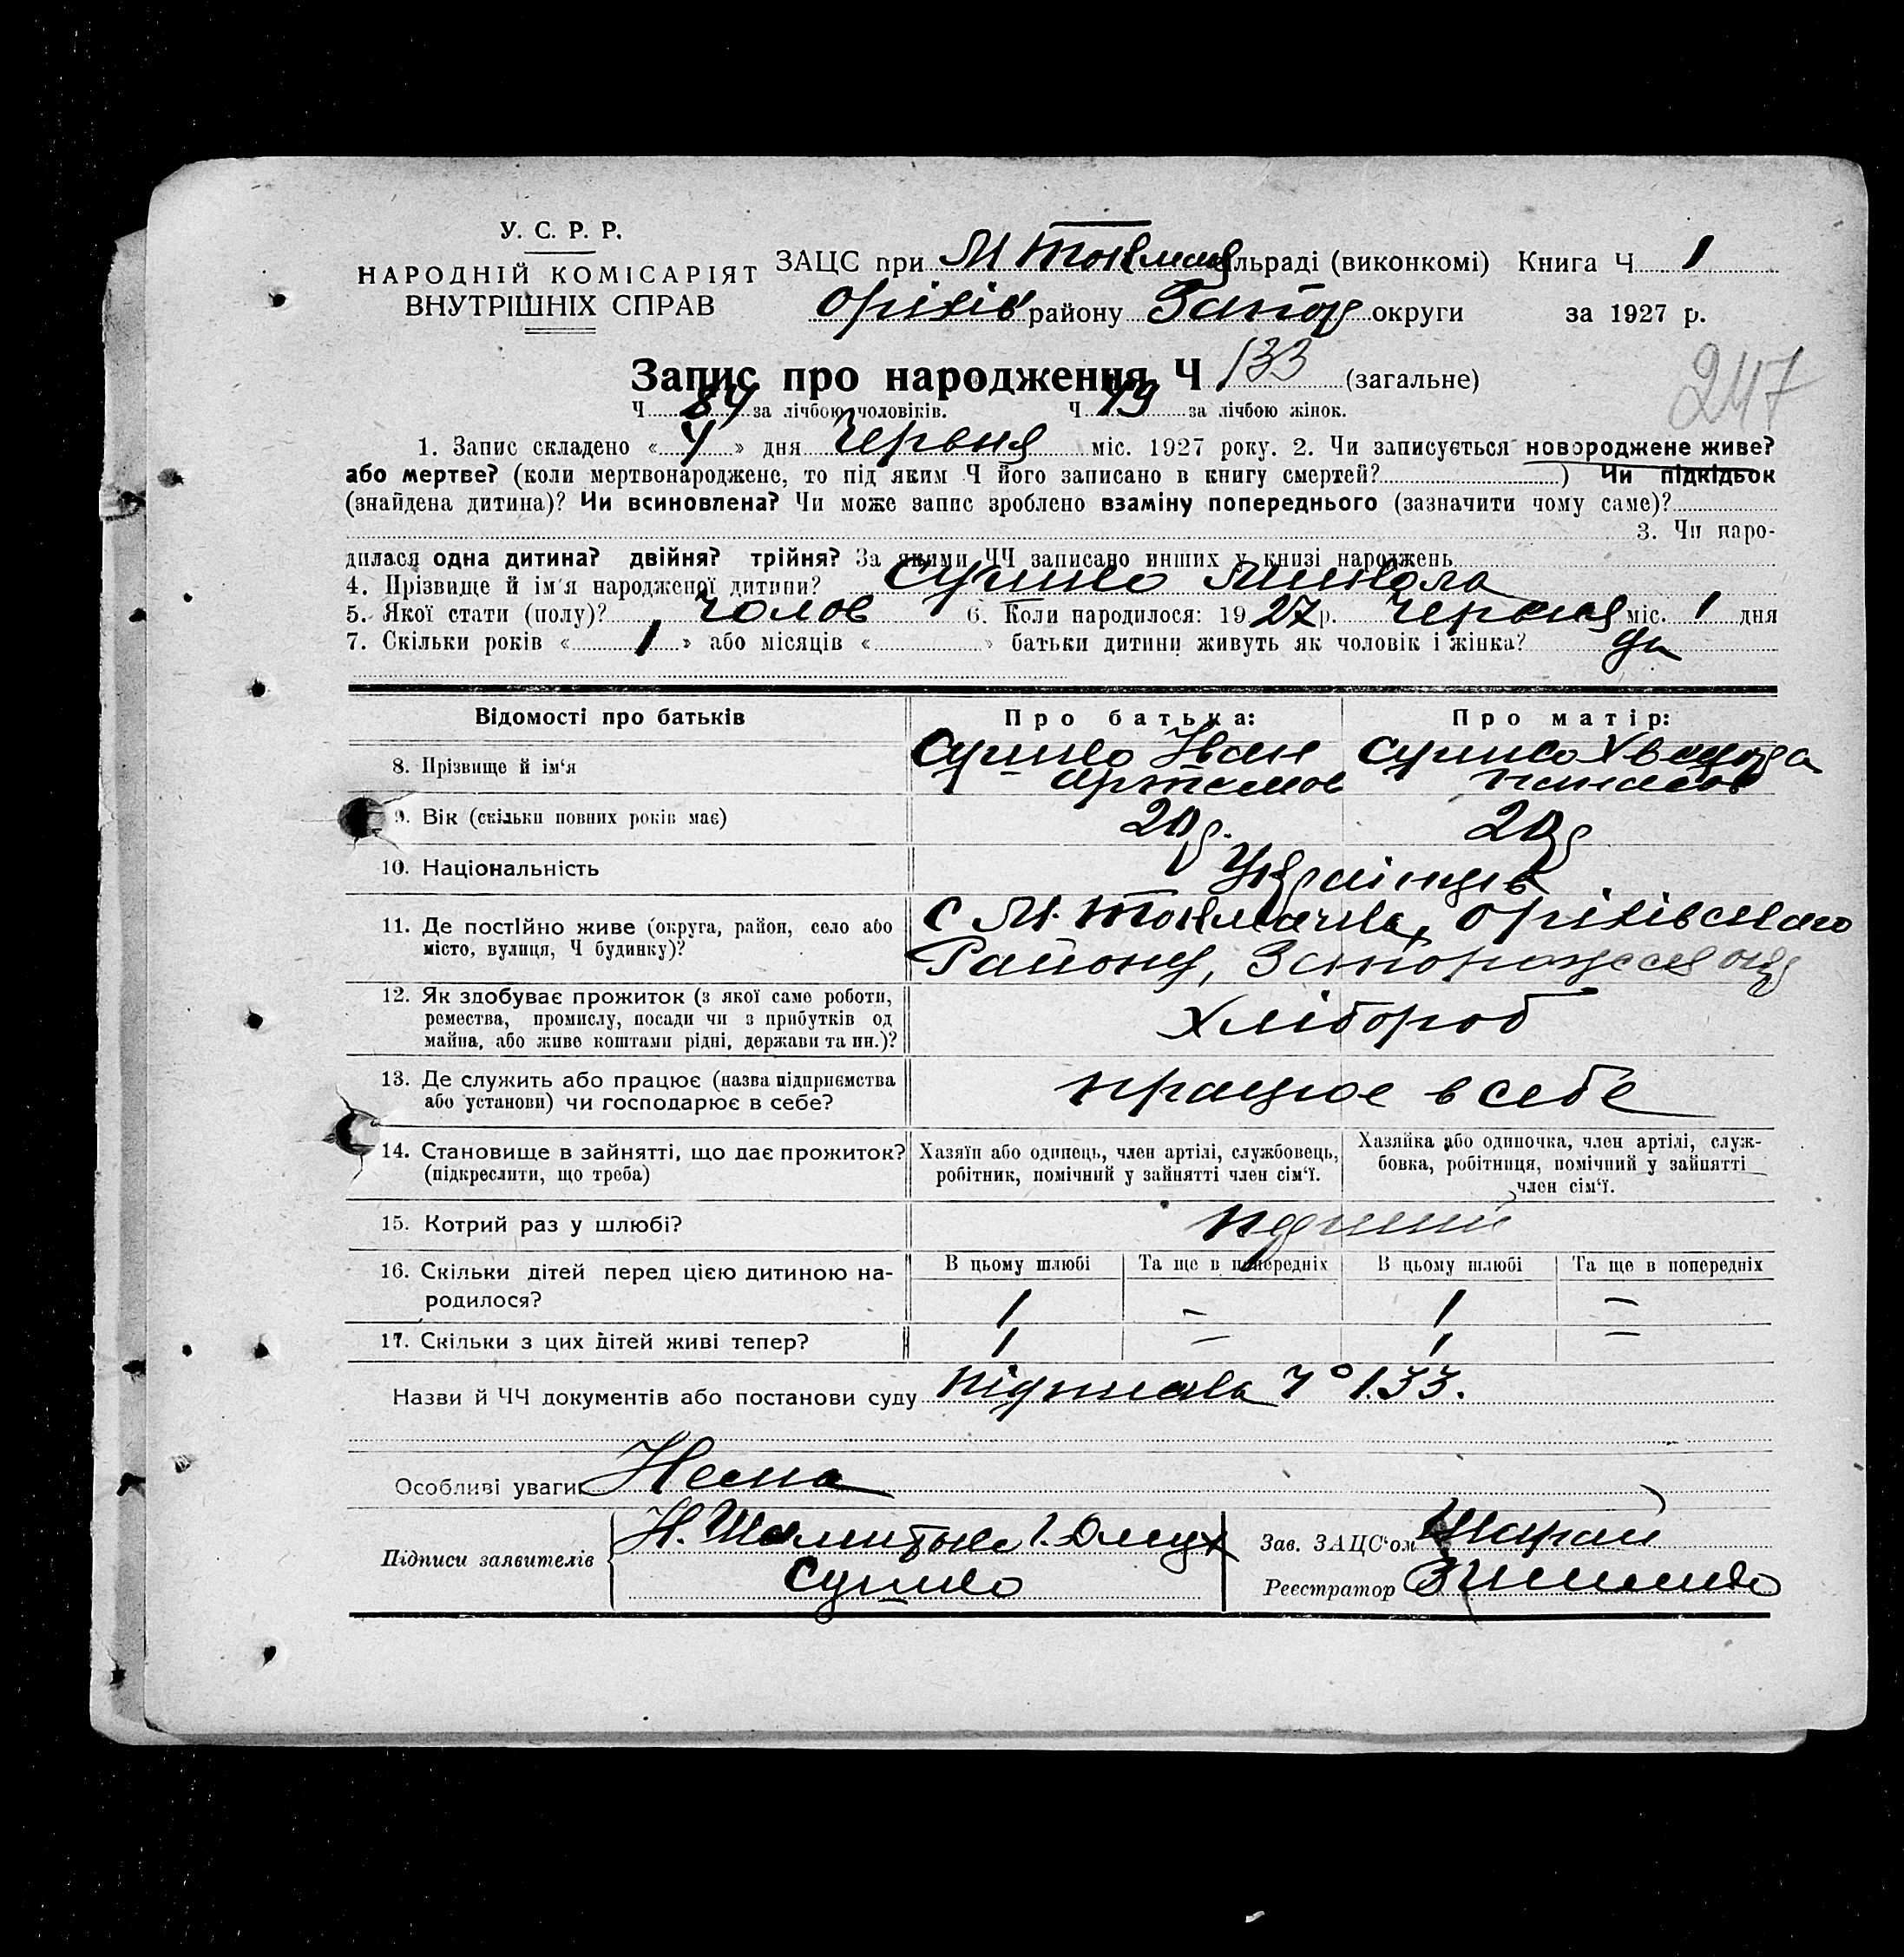 У. С. Р. Р.
НАРОДНІЙ КОМІСАРІЯТ
ВНУТРІШНІХ СПРАВ
ЗАЦС при М Токмац льраді (виконкомі) Книга Ч 1
Оріхів району Запор округи за 1927 р.
Запис про народження Ч 133 (загальне)
247
Ч 84 за лічбою чоловіків. Ч 49 за лічбою жінок.
1. Запис складено « 4 » дня Червня міс. 1927 року. 2. Чи записується новороджене живе?
або мертве? (коли мертвонароджене, то під яким Ч його записано в книгу смертей? ) Чи підкідьок
(знайдена дитина)? Чи всиновлена? Чи може запис зроблено взаміну попереднього (зазначити чому саме)?
3. Чи наро-
дилася одна дитина? двійня? трійня? За якими ЧЧ записано инших у книзі народжень
4. Прізвище й ім'я народженої дитини? Сушко Микола
5. Якої стати (полу)? чолов 6. Коли народилося: 1927 р. Червня міс. 1 дня
7. Скільки років « 1 » або місяців « » батьки дитини живуть як чоловік і жінка? да
Відомості про батьків Про батька: Про матір:
8. Прізвище й ім'я Сушко Іван Сушко
Артемов Панасов
9. Вік (скільки повних років має) 20 р. 20 р
10. Національність Українців
11. Де постійно живе (округа, район, село або С М. Токмачка, Оріхівського
місто, вулиця, Ч будинку)? Району, Запорожськ окр
12. Як здобуває прожиток (з якої саме роботи,
ремества, промислу, посади чи з прибутків од Хлібороб
майна, або живе коштами рідні, держави та ин.)?
13. Де служить або працює (назва підприємства працює в себе
або установи) чи господарює в себе?
14. Становище в зайнятті, що дає прожиток? Хазяїн або одинець, член артілі, службовець, Хазяйка або одиночка, член артілі, служ-
(підкреслити, що треба) робітник, помічний у зайнятті член сім'ї. бовка, робітниця, помічний у зайнятті
член сім'ї.
15. Котрий раз у шлюбі?
16. Скільки дітей перед цією дитиною на- В цьому шлюбі Та ще в попередніх В цьому шлюбі Та ще в попередніх
родилося? 1 – 1 –
17. Скільки з цих дітей живі тепер? 1 – 1 –
Назви й ЧЧ документів або постанови суду підписка 133.
Особливі уваги Нема
Підписи заявителів Зав. ЗАЦС'ом Шарай
Сушко Реєстратор